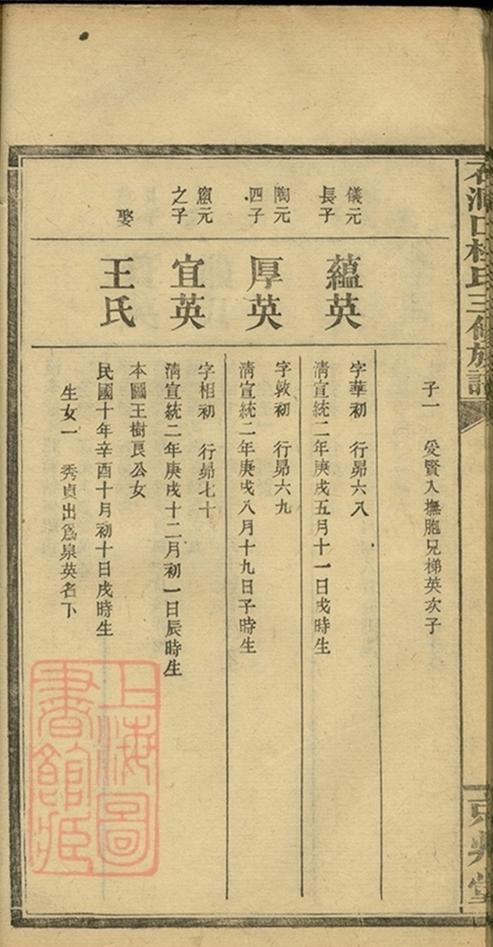 洞口林氏三修族譜
子一 愛賢入撫胞兄梯英次子
儀元
長子
蘊英
字華初 行昴六八
清宣統二年庚戌五月十一日戌時生
陶元
四子
厚英
字敦初 行昴六九
清宣統二年庚戌八月十九日子時生
元
之子
宜英
字相初 行昴七十
清宣統二年庚戌十二月初一日辰時生
娶
王氏
本圖王樹艮公女
民國十年辛酉十月初十日戌時生
生女一 秀貞出為泉英名下
堂
上海圖
書館藏